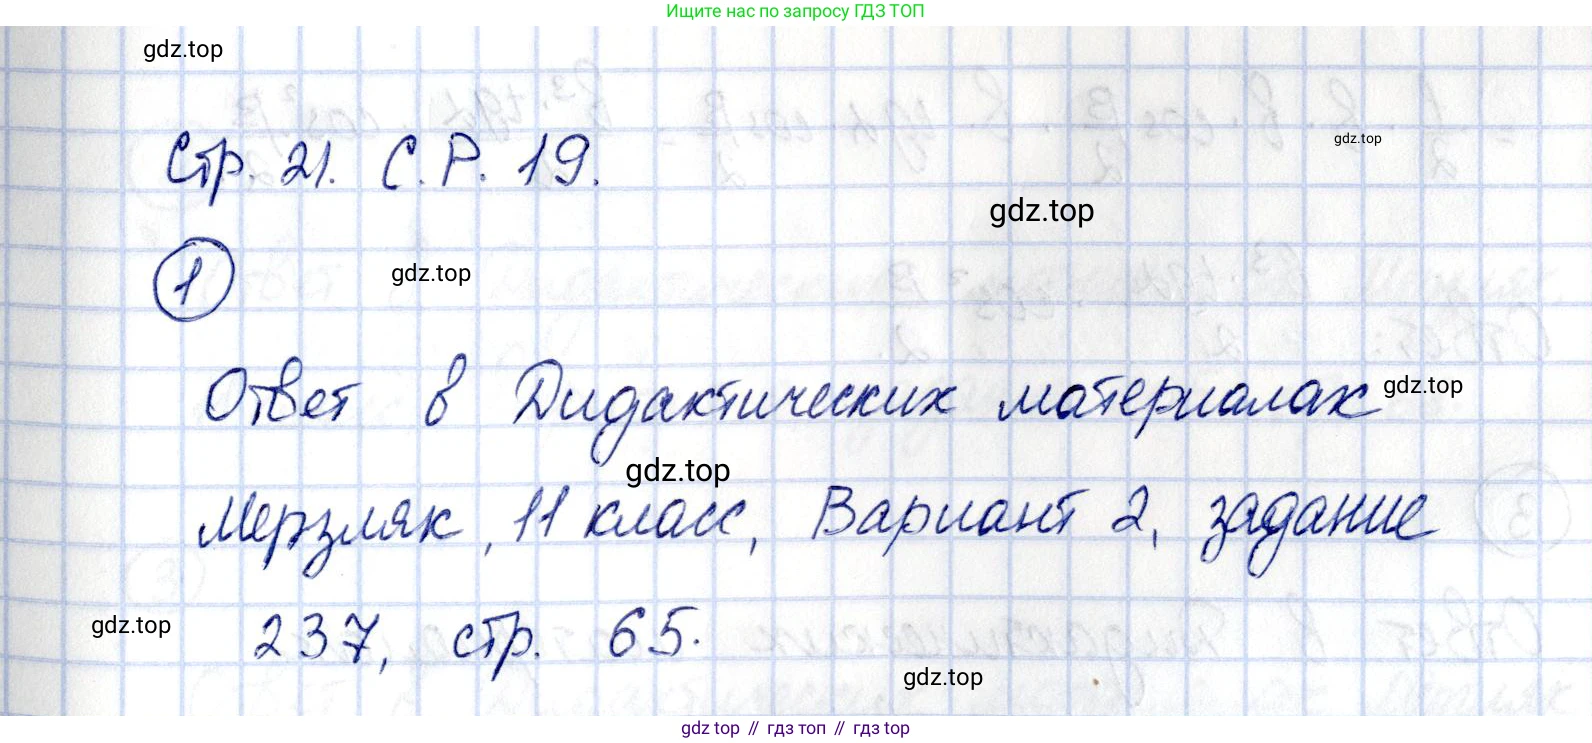 Ищите нас по запросу ГДЗ ТОП
gdz.top
Стр. 21. С.Р. 19.
gdz.top
gdz.top
1
gdz.top
Ответ в Дидактических материалах
gdz.top
gdz.top
Мерзляк, 11 класс, Вариант 2, задание
237, стр. 65.
gdz.top
gdz.top
gdz top // гдз топ // gdz top